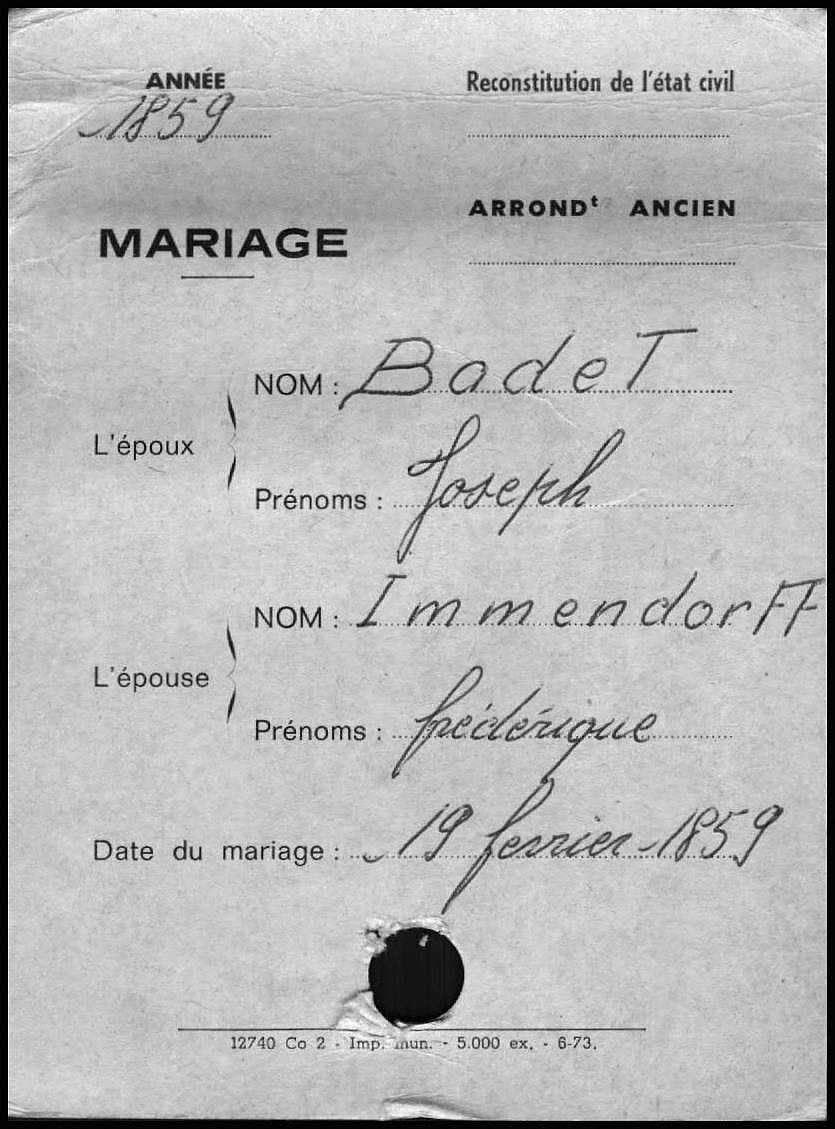 ANNÉE
1859
Reconstitution de l'état civil
ARRONDt ANCIEN
MARIAGE
L'époux
NOM : BadeT
Prénoms : Joseph
L'épouse
NOM : ImmendorFF
Prénoms : frédérique
Date du mariage : 19 fevrier 1859
12740 Co 2 - Imp. mun. - 5.000 ex. - 6-73.